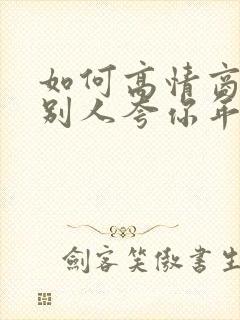 如何高情商
别人夸你年
劍客笑傲書生